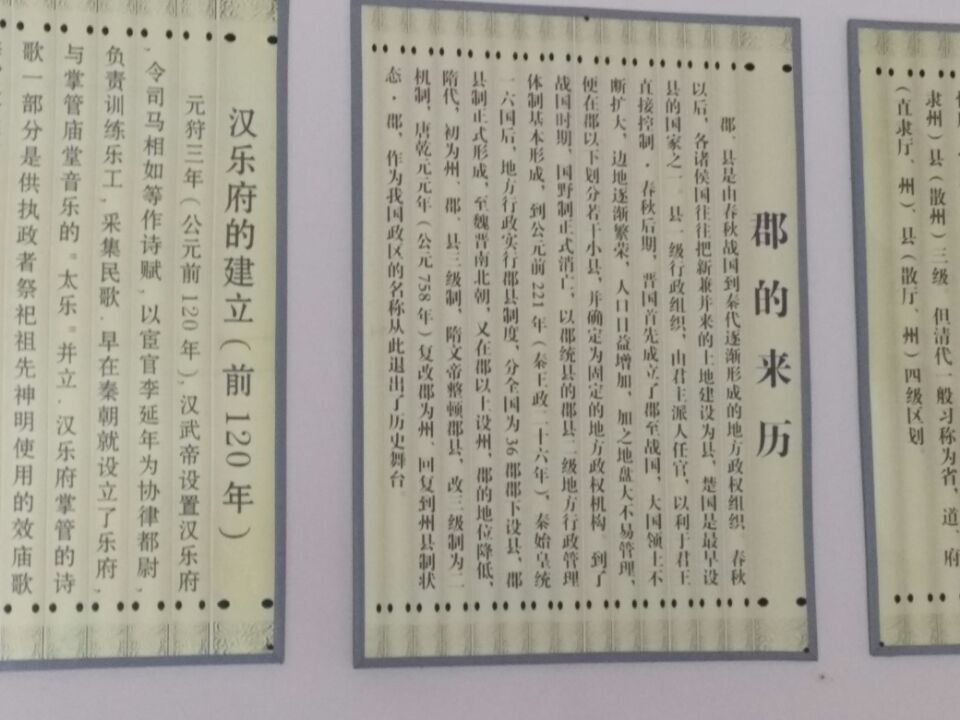 郡的来历
郡、县是由春秋战国到秦代逐渐形成的地方政权组织。春秋
以后，各诸侯国往往把新兼并来的土地建设为县，楚国是最早设
县的国家之一．县一级行政组织，由君主派人任官，以利于君王
直接控制．春秋后期，晋国首先成立了郡至战国，大国领土不
断扩大，边地逐渐繁荣，人口日益增加，加之地盘大不易管理，
便在郡以下划分若干小县，并确定为固定的地方政权机构．到了
战国时期，国野制正式消亡，以郡统县的郡县二级地方行政管理
体制基本形成，到公元前221年（秦王政二十六年），秦始皇统
一六国后，地方行政实行郡县制度，分全国为36郡郡下设县，郡
县制正式形成，至魏晋南北朝，又在郡以上设州，郡的地位降低，
隋代，初为州、郡、县三级制，隋文帝整顿郡县，改三级制为二
机制，唐乾元元年（公元758年）复改郡为州，回复到州县制状
态．郡，作为我国政区的名称从此退出了历史舞台．
汉乐府的建立（前120年）
元狩三年（公元前120年），汉武帝设置汉乐府
，令司马相如等作诗赋，以宦官李延年为协律都尉，
负责训练乐工，采集民歌．早在秦朝就设立了乐府
与掌管庙堂音乐的"太乐"并立．汉乐府掌管的诗
歌一部分是供执政者祭祀祖先神明使用的效庙歌
隶州）县（散州）三级 但清代一般习称为省，道，府
（直隶厅、州）、县（散厅、州）四级区划